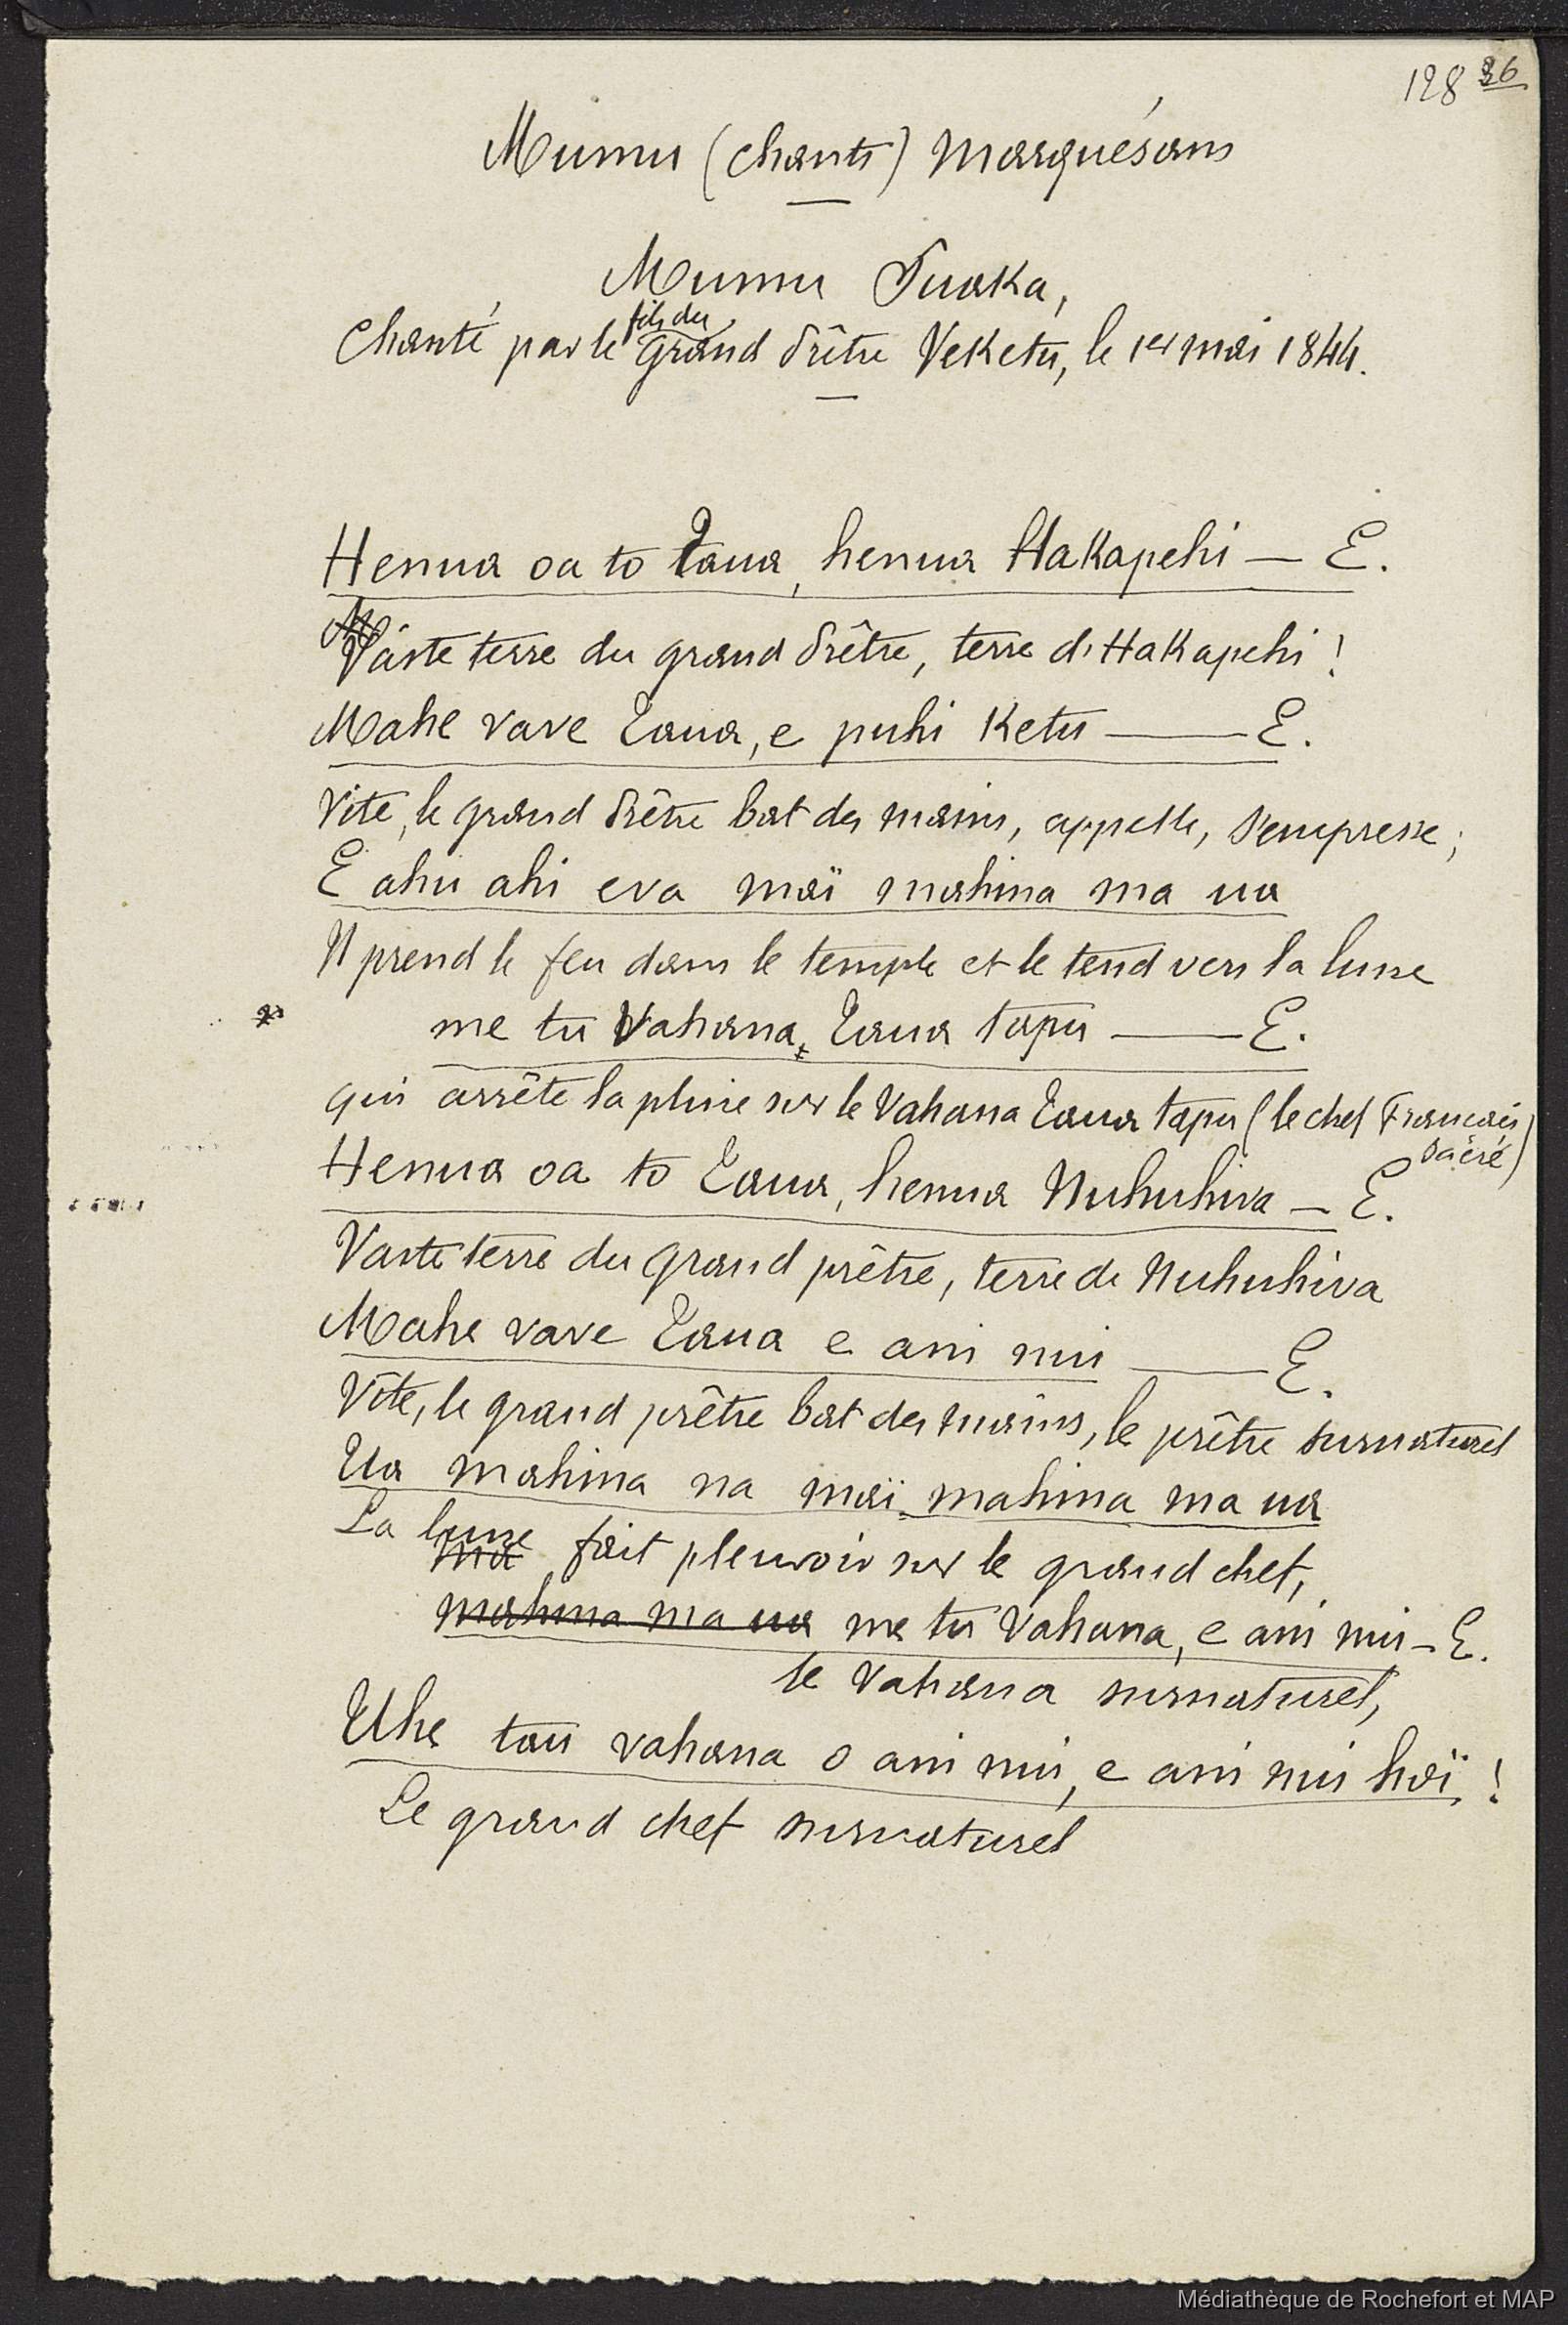 128 36
Mumu (chants) Marquésans
Mumu Puaka,
Chanté par le fils du Grand Prêtre Veketu, le 1er mai 1844.
Henua oa to Taua, henua Hakapehi — E.
Vaste terre du grand Prêtre, terre d'Hakapehi !
Mahe vave Taua, e puhi Ketu — E.
Vite, le grand Prêtre bat des mains, appelle, s'empresse ;
E ahu ahi eva maï mahina ma ua
Il prend le feu dans le temple et le tend vers la lune
me tu Vahana, Taua tapu — E.
qui arrête la pluie sur le Vahana Taua tapu (le chef Français sacré)
Henua oa to Taua, henua Nuhuhiva — E.
Vaste terre du grand prêtre, terre de Nuhuhiva
Mahe vave Taua e ani nui — E.
Vite, le grand prêtre bat des mains, le prêtre surnaturel
Ua mahina na maï mahina ma ua
La lune ma fait pleuvoir sur le grand chef,
mahina ma ua me tu Vahana, e ani nui — E.
le Vahana surnaturel,
Uhe tau vahana o ani nui, e ani nui hoï !
Le grand chef surnaturel
Médiathèque de Rochefort et MAP